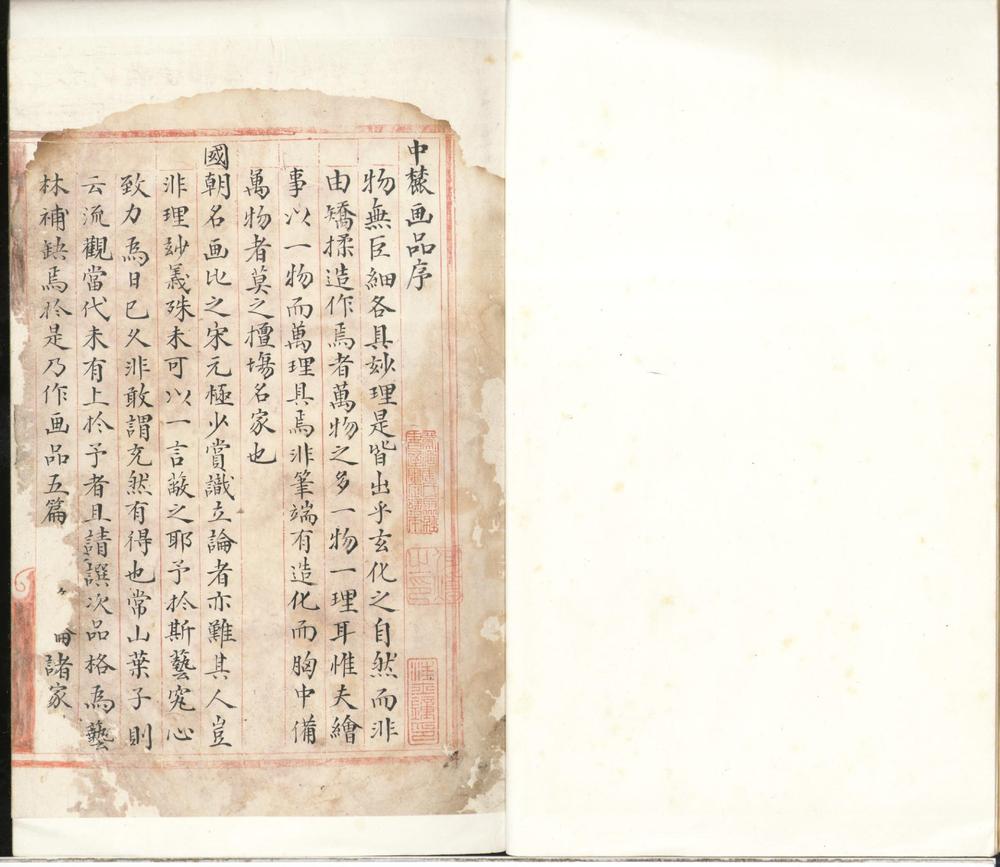 中麓画品序
物無巨細各具妙理是皆出乎玄化之自然而非
由矯揉造作焉者萬物之多一物一理耳惟夫繪
事以一物而萬理具焉非筆端有造化而胸中備
萬物者莫之擅塲名家也
國朝名画比之宋元極少賞識立論者亦難其人豈
非理玅義殊未可以一言蔽之耶予扵斯藝究心
致力為日已久非敢謂充然有得也常山葉子則
云流觀當代未有上扵予者且請譔次品格為藝
林補缺焉扵是乃作画品五篇 冊諸家